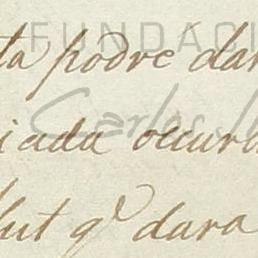 FUNDACI
ta podre dar
Carlos
iada ocurr
lut q.e dara